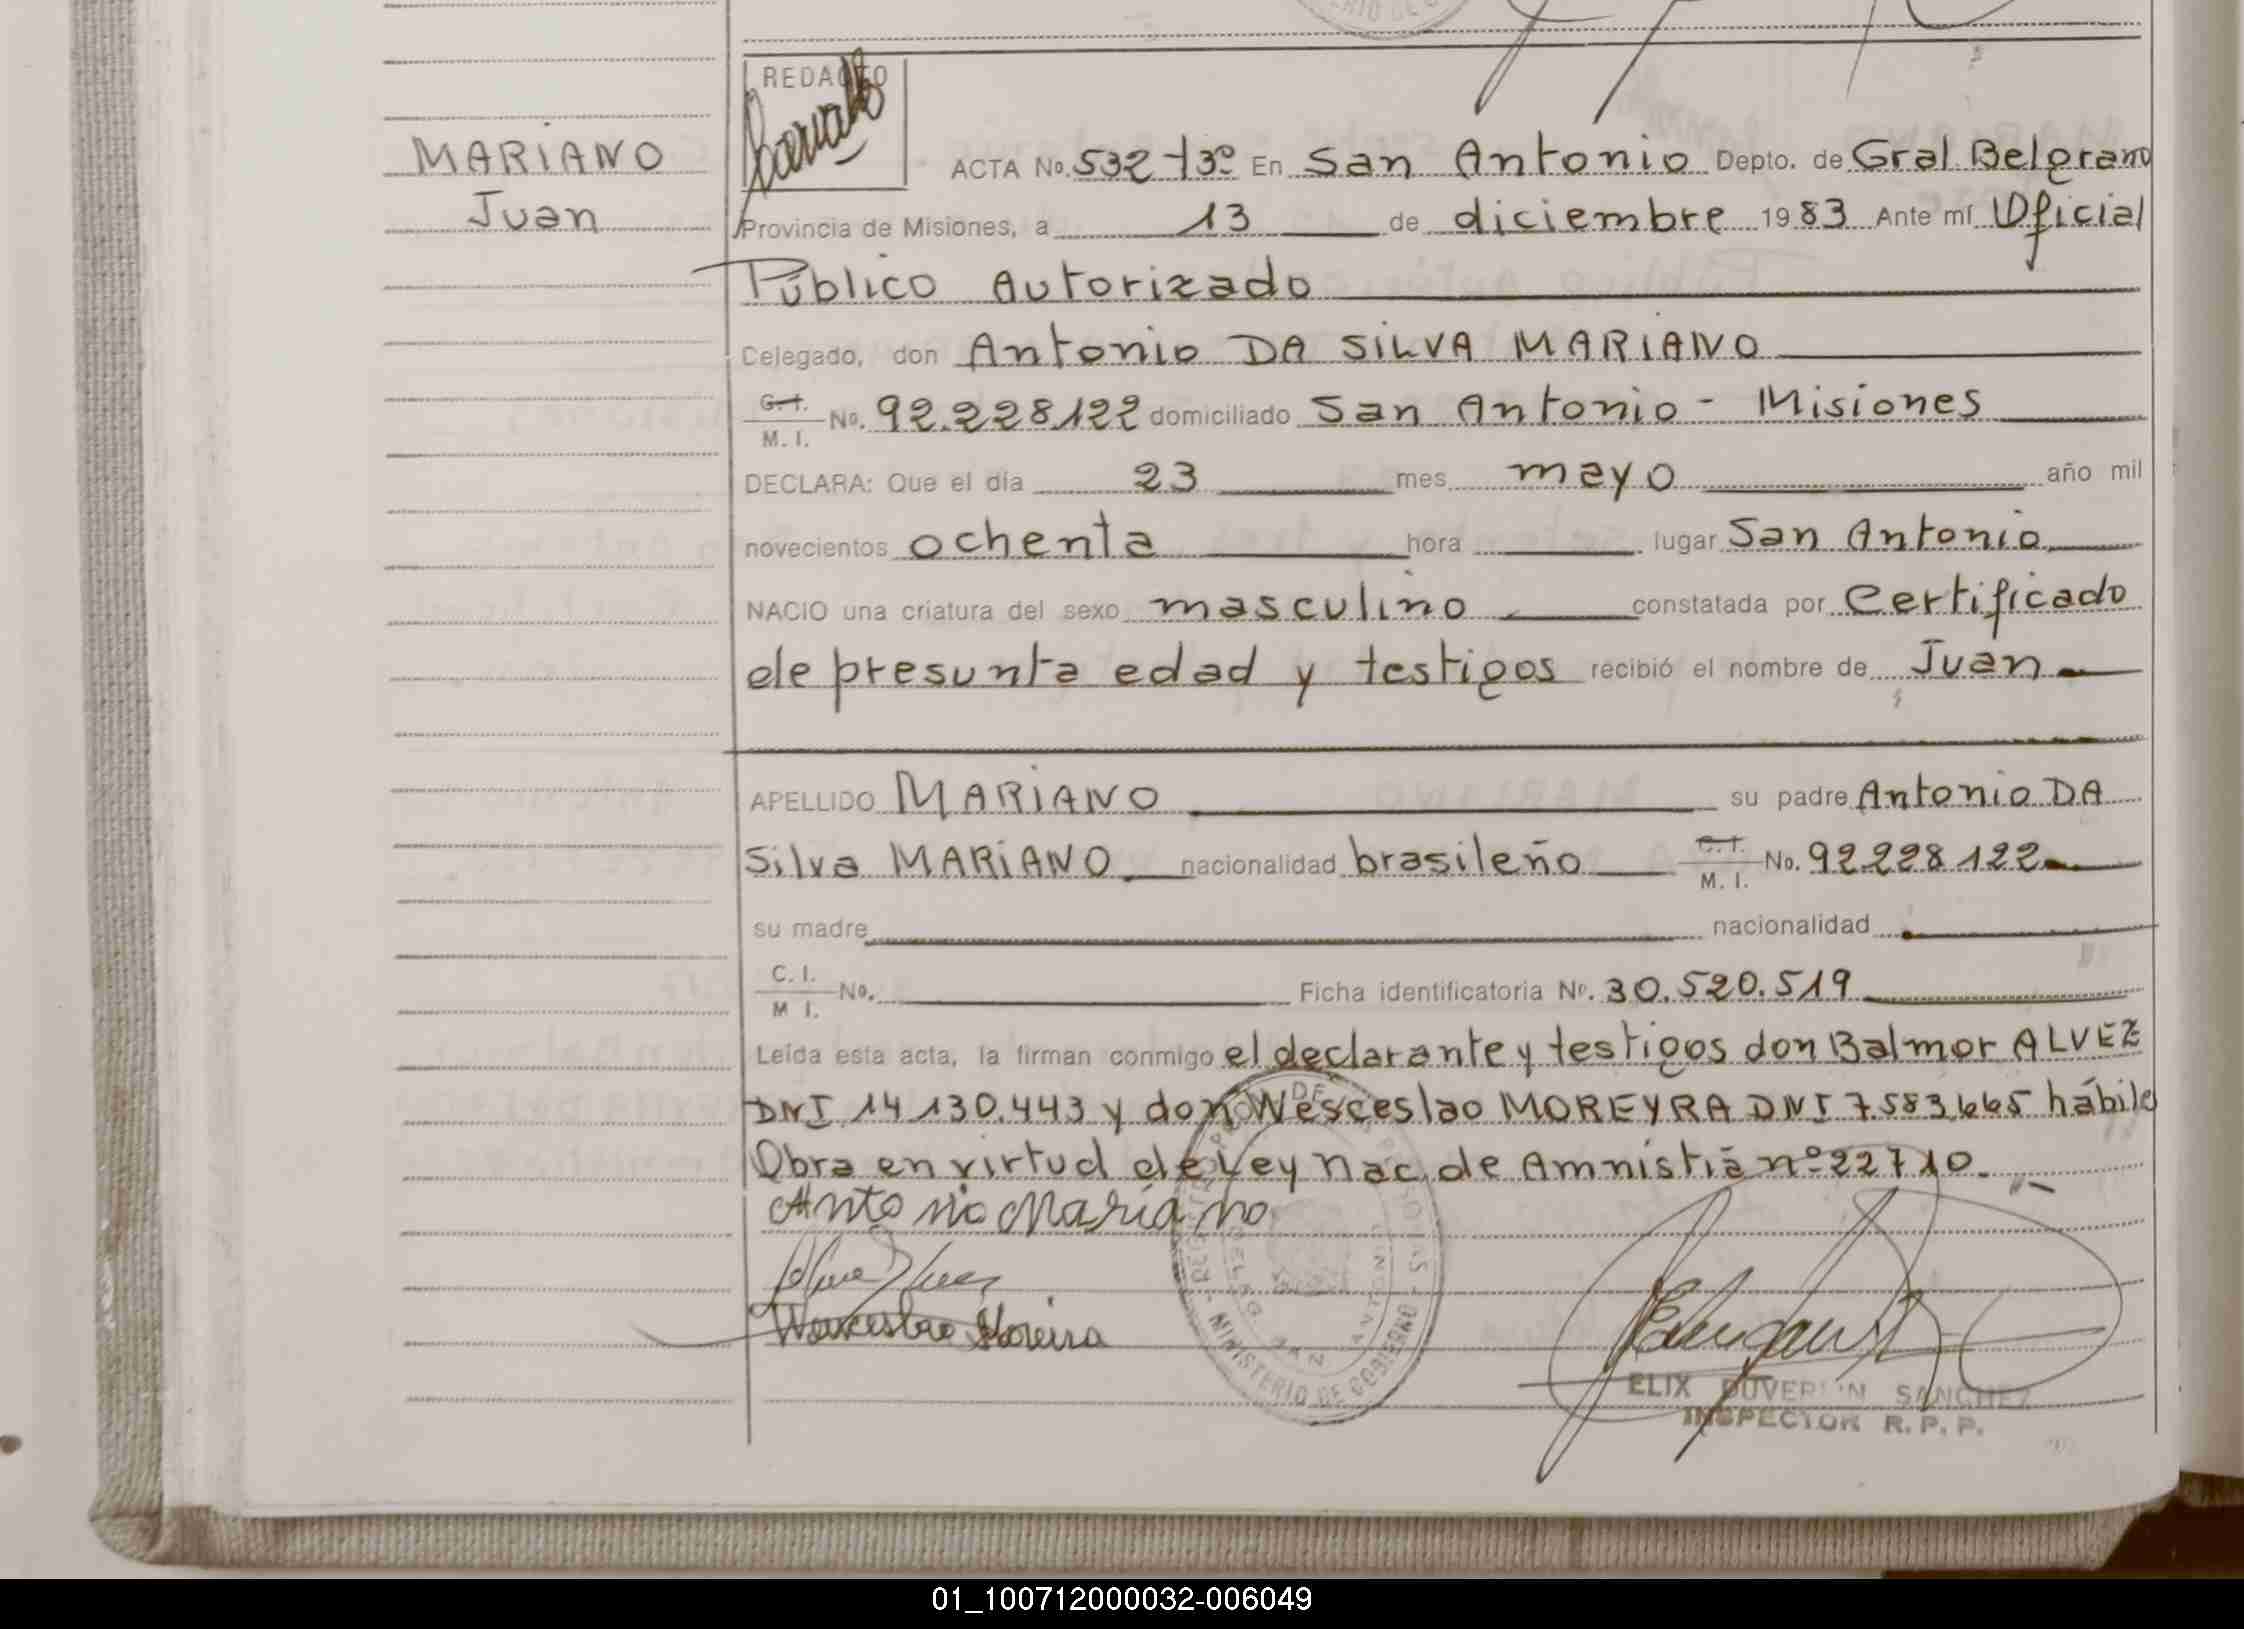 REDACTO
MARIANO
Juan
ACTA No. 532 - T3º En San Antonio Depto. de Gral. Belgrano
Provincia de Misiones, a 13 de diciembre 1983 Ante mí Oficial
Público Autorizado
Celegado, don Antonio DA SILVA MARIANO
C.I. M. I. No. 92.228.122 domiciliado San Antonio - Misiones
DECLARA: Que el día 23 mes mayo año mil
novecientos ochenta hora lugar San Antonio
NACIO una criatura del sexo masculino constatada por Certificado
de presunta edad y testigos recibió el nombre de Juan
APELLIDO MARIANO su padre Antonio DA
Silva MARIANO nacionalidad brasileño C.I. M. I. No. 92.228.122
su madre nacionalidad
C. I. M I. No. Ficha identificatoria No. 30.520.519
Leída esta acta, la firman conmigo el declarante y testigos don Balmor ALVEZ
DNI 14.130.443 y don Wesceslao MOREYRA DNI 7583.665 hábile
Obra en virtud de Ley Nac. de Amnistiá nº 22710.
Antonio Mariano
Wenceslao Moreira
MINISTERIO DE GOBIERNO
SAN ANTONIO
ELIX DUVERLIN SANCHEZ
INSPECTOR R. P. P.
01_100712000032-006049